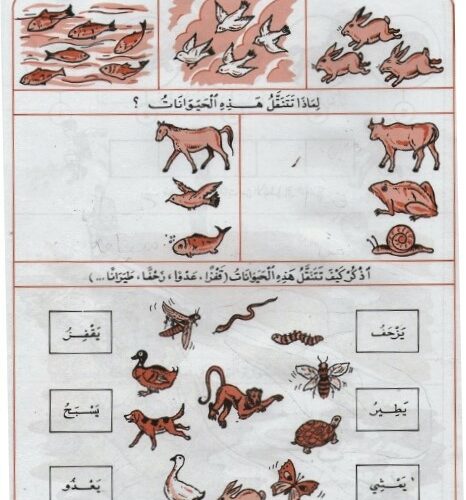 لِمَاذَا تَتَنَقَّلُ هَذِهِ الْحَيَوَانَاتُ ؟
اُذْكُرْ كَيْفَ تَتَنَقَّلُ هَذِهِ الْحَيَوَانَاتُ (قَفْزًا، عَدْوًا، زَحْفًا، طَيَرَانًا ...)
يَزْحَفُ
يَقْفِزُ
يَطِيرُ
يَسْبَحُ
يَمْشِي
يَعْدُو